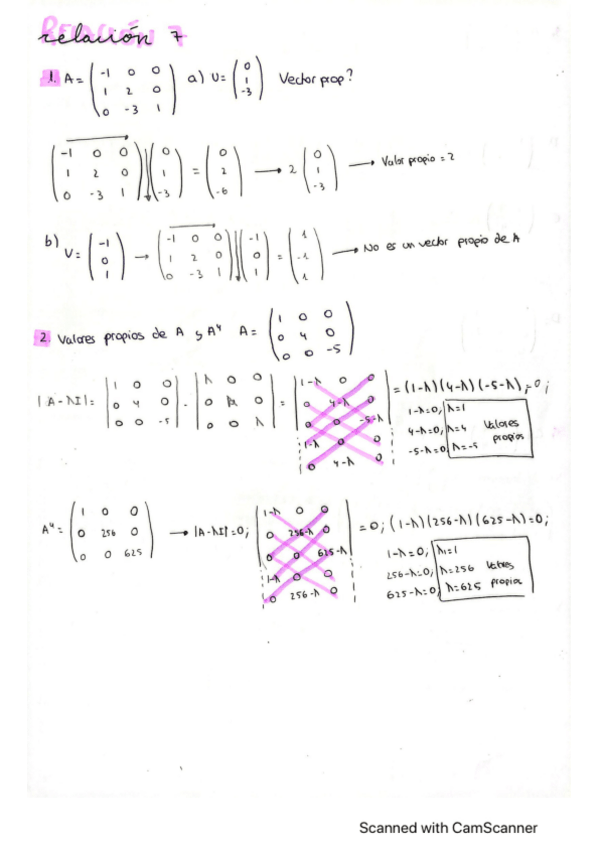 relación 7
1. A = ( -1 0 0 / 1 2 0 / 0 -3 1 ) a) U = ( 0 / 1 / -3 ) Vector prop?
( -1 0 0 / 1 2 0 / 0 -3 1 ) ( 0 / 1 / -3 ) = ( 0 / 2 / -6 ) → 2 ( 0 / 1 / -3 ) → Valor propio = 2
b) V = ( -1 / 0 / 1 ) → ( -1 0 0 / 1 2 0 / 0 -3 1 ) ( -1 / 0 / 1 ) = ( 1 / -1 / 1 ) → No es un vector propio de A
2. Valores propios de A y A⁴ A = ( 1 0 0 / 0 4 0 / 0 0 -5 )
|A-λI| = | 1 0 0 / 0 4 0 / 0 0 -5 | - | λ 0 0 / 0 λ 0 / 0 0 λ | = | 1-λ 0 0 / 0 4-λ 0 / 0 0 -5-λ | = (1-λ)(4-λ)(-5-λ) = 0;
1-λ 0 0
0 4-λ 0
1-λ=0; λ=1
4-λ=0; λ=4 Valores
-5-λ=0; λ=-5 propios
A⁴ = ( 1 0 0 / 0 256 0 / 0 0 625 ) → |A-λI| = 0; | 1-λ 0 0 / 0 256-λ 0 / 0 0 625-λ | = 0; (1-λ)(256-λ)(625-λ)=0;
1-λ 0 0
0 256-λ 0
1-λ=0; λ=1
256-λ=0; λ=256 Valores
625-λ=0; λ=625 propios
Scanned with CamScanner